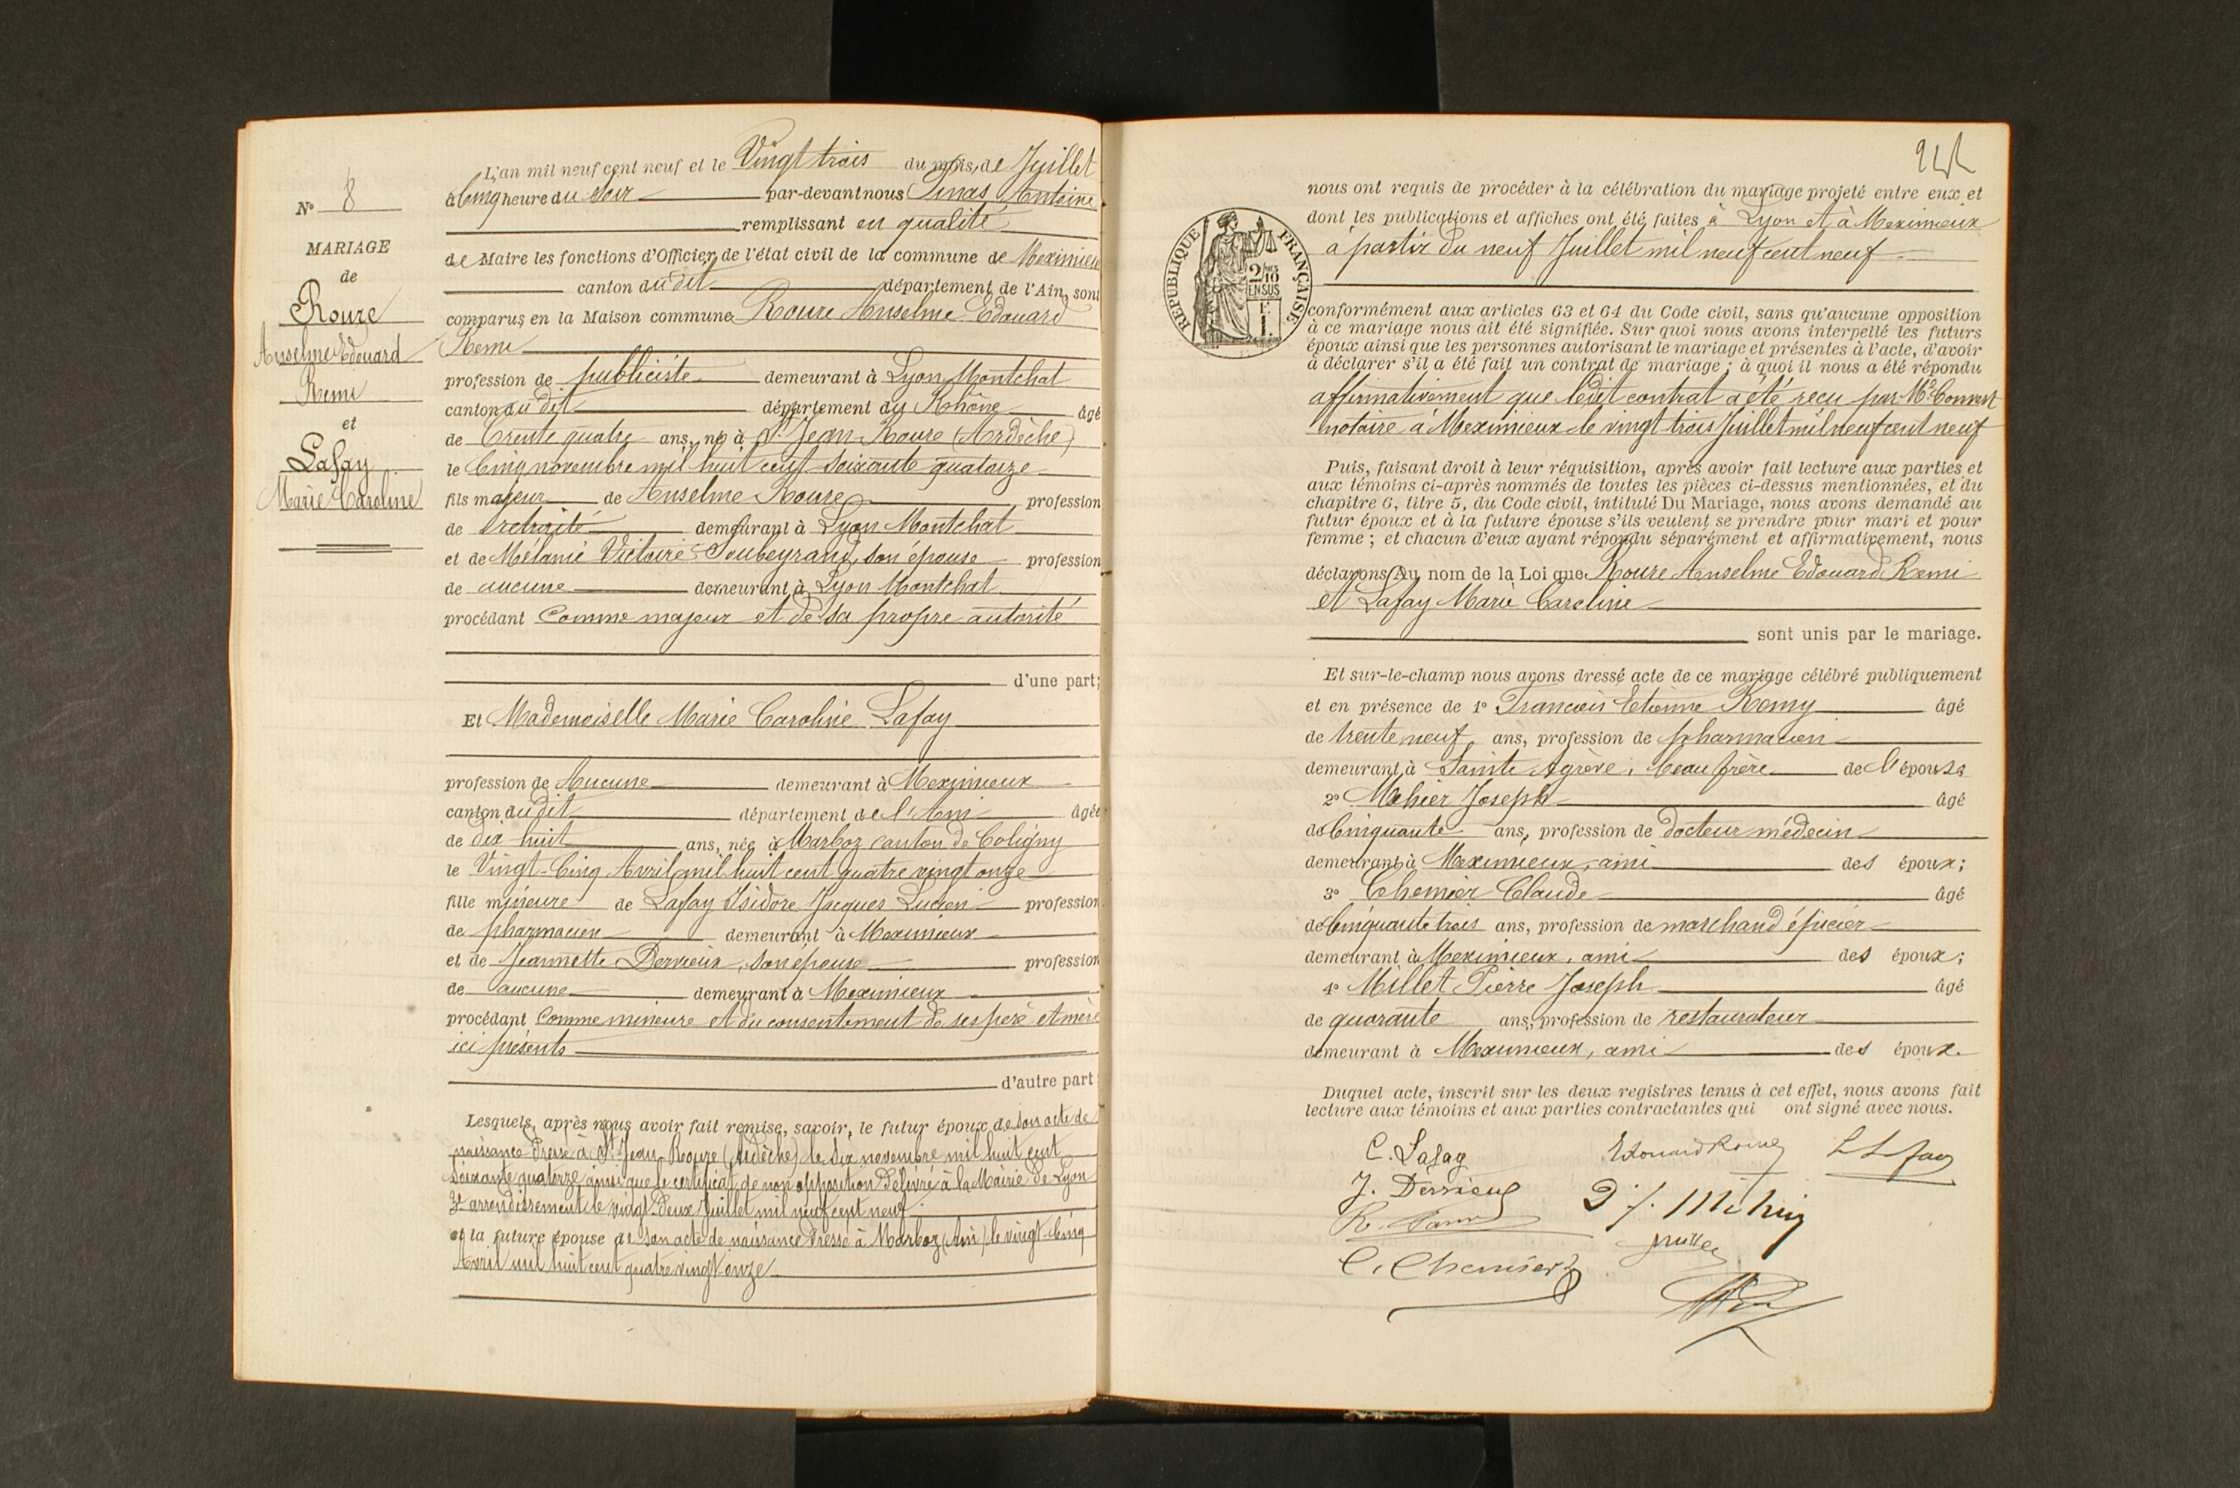 N° 8
MARIAGE
de
Roure
Anselme Edouard
Remi
et
Lafay
Marie Caroline
L'an mil neuf cent neuf et le Vingt trois du mois de Juillet
à Cinq heure du Soir par-devant nous Pinas Antoine
remplissant en qualité
de Maire les fonctions d'Officier de l'état civil de la commune de Meximieu
canton du dit département de l'Ain, sont
comparus en la Maison commune Roure Anselme Edouard
Remi
profession de publiciste demeurant à Lyon Montchat
canton du dit département du Rhône âgé
de Trente quatre ans, né à St Jean Roure (Ardèche)
le Cinq novembre mil huit cent soixante quatorze
fils majeur de Anselme Roure profession
de retraité demeurant à Lyon Montchat
et de Mélanie Victoire Soubeyrand, son épouse profession
de aucune demeurant à Lyon Montchat
procédant Comme majeur et de sa propre autorité
d'une part;
Et Mademoiselle Marie Caroline Lafay
profession de Aucune demeurant à Meximieux
canton du dit département de l'Ain âgée
de dix huit ans, née à Marboz canton de Coligny
le Vingt-Cinq Avril mil huit cent quatre vingt onze
fille mineure de Lafay Isidore Jacques Lucien profession
de pharmacien demeurant à Meximieux
et de Jeannette Derrieux, son épouse profession
de aucune demeurant à Meximieux
procédant Comme mineure et du consentement de ses père et mère
ici présents
d'autre part;
Lesquels, après nous avoir fait remise, savoir, le futur époux de son acte de
naissance dressé à St Jean Roure (Ardèche) le six novembre mil huit cent
soixante quatorze ainsi que le certificat de non opposition délivré à la Mairie de Lyon
3e arrondissement le vingt deux Juillet mil neuf cent neuf.
et la future épouse de son acte de naissance dressé à Marboz (Ain) le vingt-cinq
Avril mil huit cent quatre vingt onze
nous ont requis de procéder à la célébration du mariage projeté entre eux et
dont les publications et affiches ont été faites à Lyon et à Meximieux
à partir du neuf Juillet mil neuf cent neuf
REPUBLIQUE FRANÇAISE
2/10 EN SUS
F 1.
conformément aux articles 63 et 64 du Code civil, sans qu'aucune opposition
à ce mariage nous ait été signifiée. Sur quoi nous avons interpellé les futurs
époux ainsi que les personnes autorisant le mariage et présentes à l'acte, d'avoir
à déclarer s'il a été fait un contrat de mariage ; à quoi il nous a été répondu
affirmativement que ledit contrat a été reçu par Me Convert
notaire à Meximieux le vingt trois Juillet mil neuf cent neuf
Puis, faisant droit à leur réquisition, après avoir fait lecture aux parties et
aux témoins ci-après nommés de toutes les pièces ci-dessus mentionnées, et du
chapitre 6, titre 5, du Code civil, intitulé Du Mariage, nous avons demandé au
futur époux et à la future épouse s'ils veulent se prendre pour mari et pour
femme ; et chacun d'eux ayant répondu séparément et affirmativement, nous
déclarons Au nom de la Loi que Roure Anselme Edouard Remi
et Lafay Marie Caroline
sont unis par le mariage.
Et sur-le-champ nous avons dressé acte de ce mariage célébré publiquement
et en présence de 1° Francois Etienne Remy âgé
de trente neuf ans, profession de pharmacien
demeurant à Sainte Agrève, beau frère de l'épouse
2° Mehier Joseph âgé
de Cinquante ans, profession de docteur médecin
demeurant à Meximieux, ami des époux;
3° Chemier Claude âgé
de Cinquante trois ans, profession de marchand épicier
demeurant à Meximieux, ami des époux;
4° Millet Pierre Joseph âgé
de quarante ans, profession de restaurateur
demeurant à Meximieux, ami des époux.
Duquel acte, inscrit sur les deux registres tenus à cet effet, nous avons fait
lecture aux témoins et aux parties contractantes qui ont signé avec nous.
C. Lafay Edouard Roure
J. Derrieux
C. Chemier